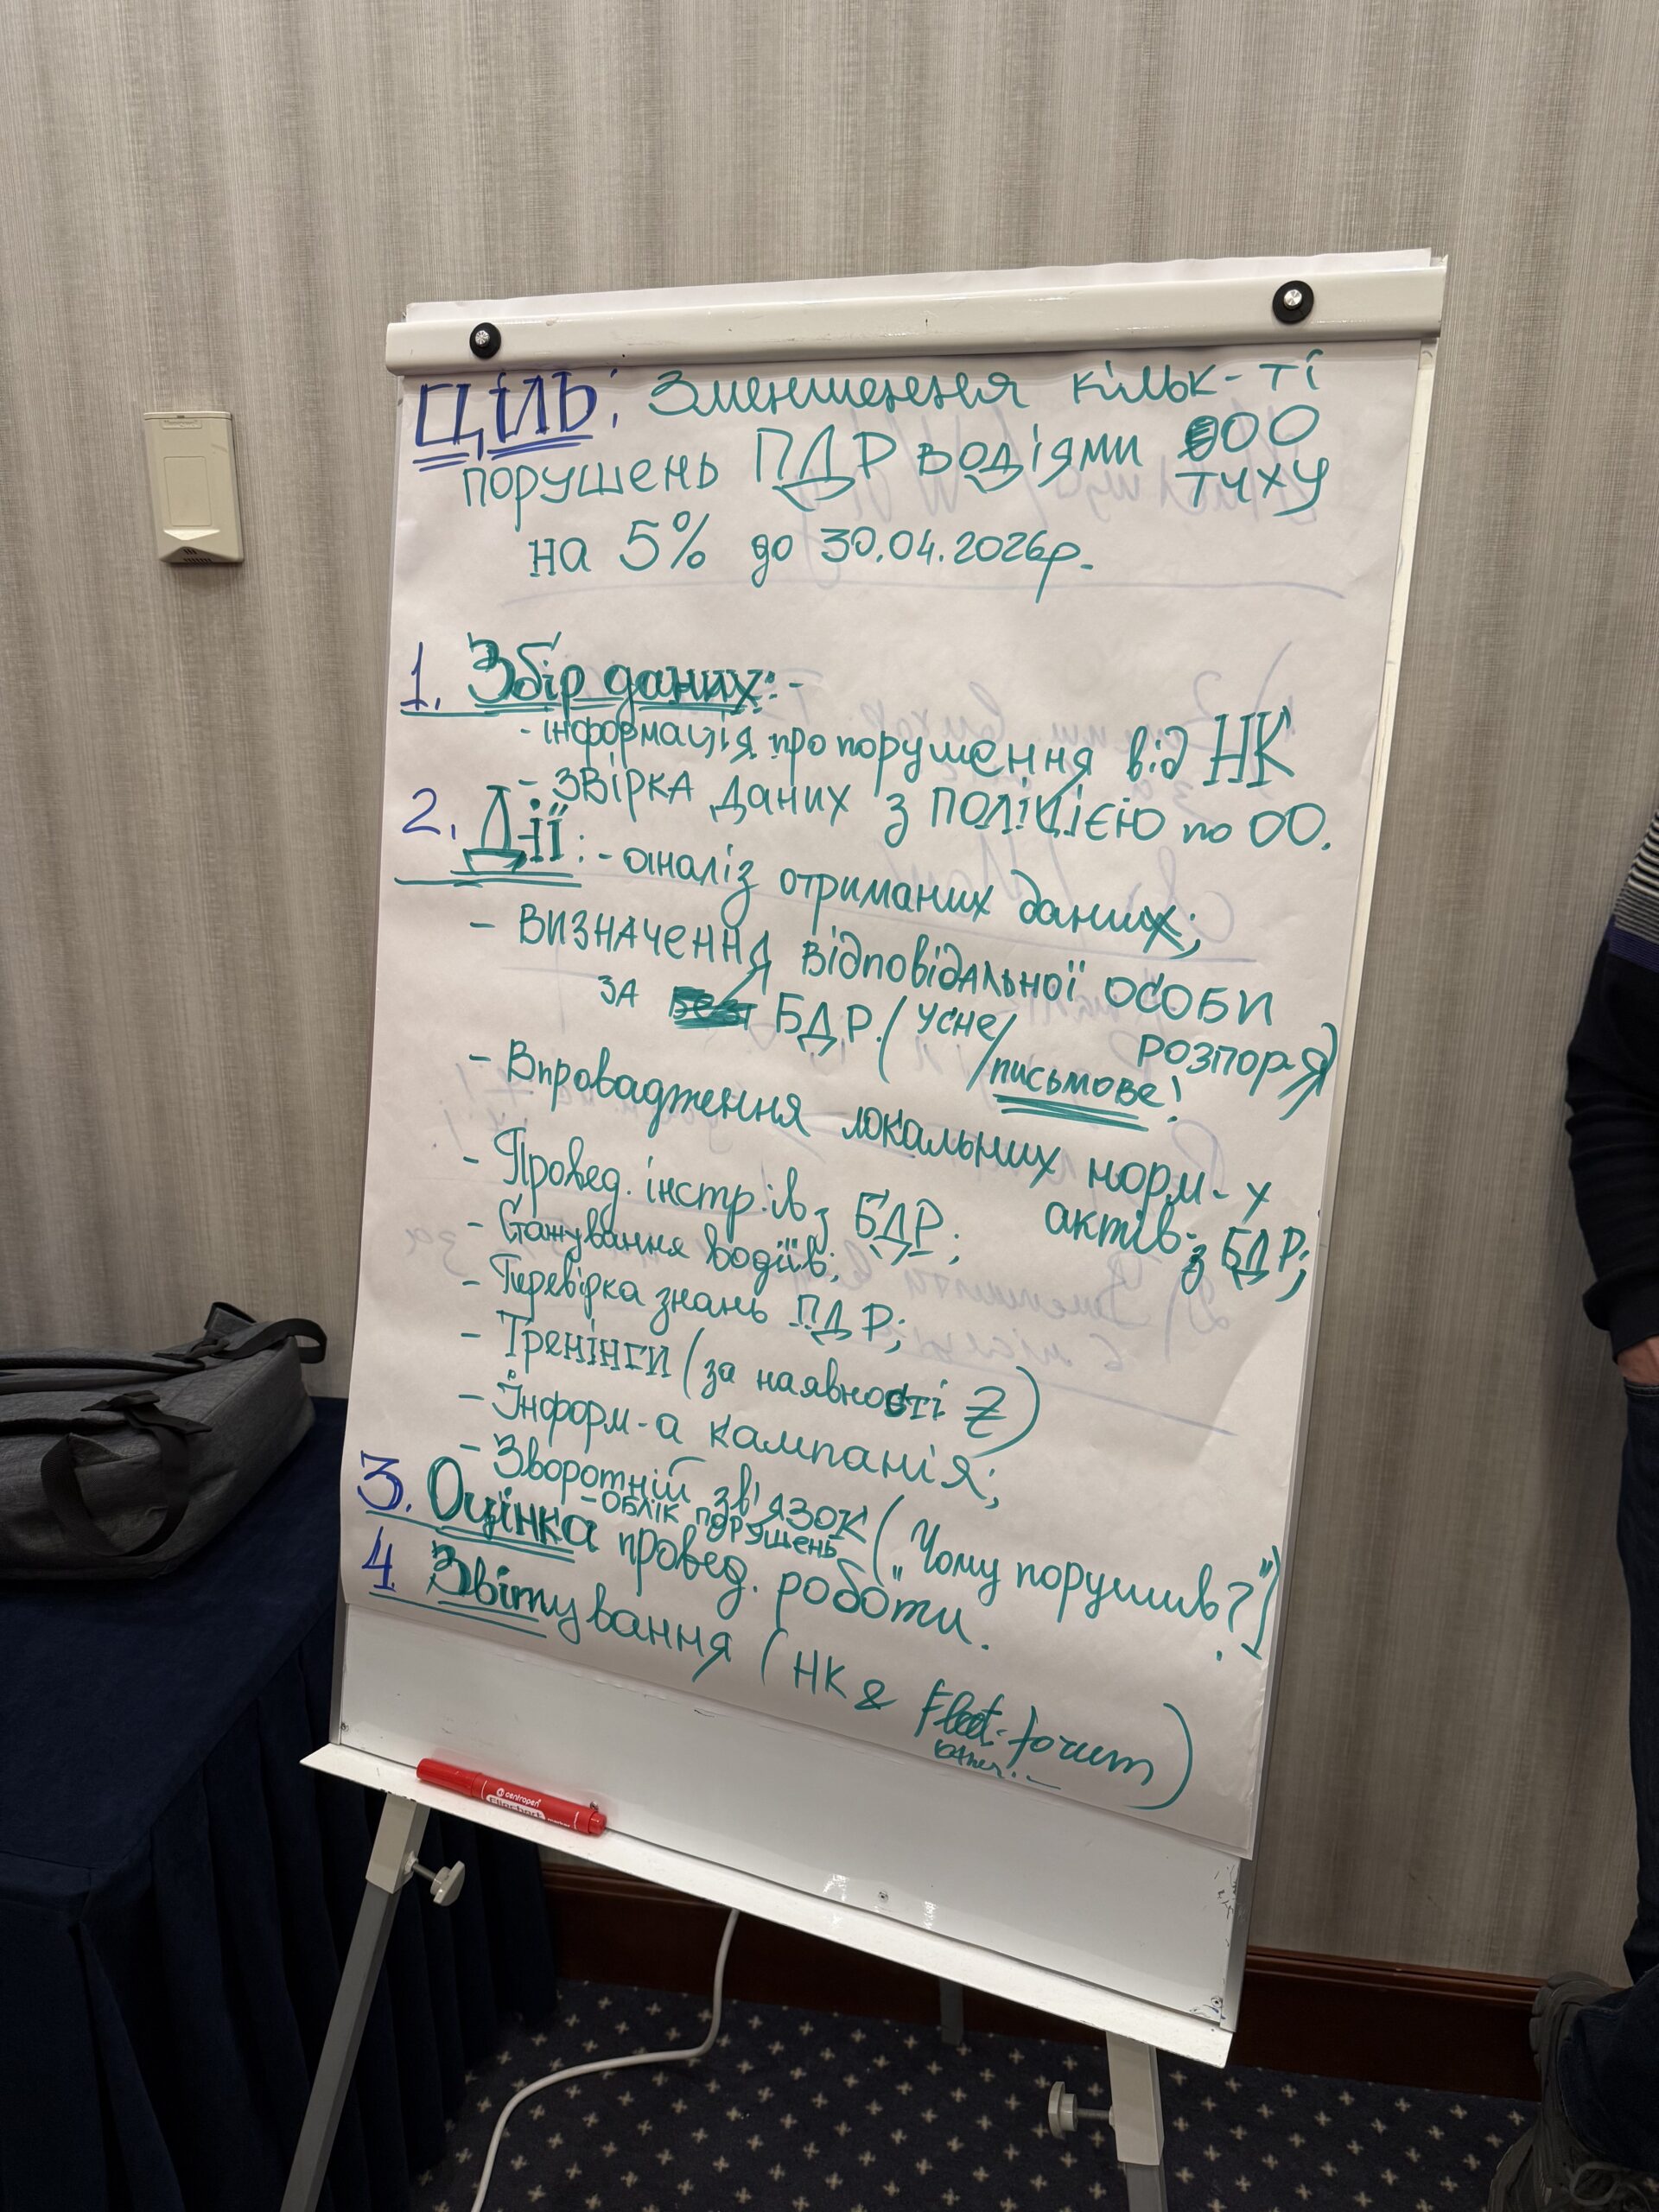 ЦІЛЬ: Зменшення кільк-ті
порушень ПДР водіями ОО
ТЧХУ
на 5% до 30.04.2026р.
1. Збір даних: -
- інформація про порушення від НК
- звірка даних з поліцією по ОО.
2. Дії: - аналіз отриманих даних;
- Визначення відповідальної особи
за БДР. (усне/письмове! розпор-я)
- Впровадження локальних норм-х
актів з БДР;
- Провед. інстр.ів з БДР;
- Стажування водіїв;
- Перевірка знань ПДР;
- Тренінги (за наявності ₴)
- Інформ-а кампанія;
- Зворотній зв'язок ("Чому порушив?")
- облік порушень
3. Оцінка провед. роботи.
4. Звітування (НК & Fleet forum)
centropen